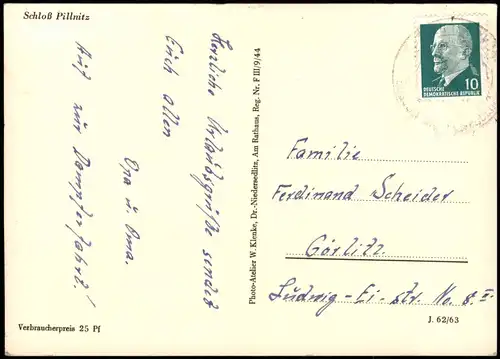 Schloß Pillnitz
Herzliche Urlaubsgrüße sendet
Euch allen
Opa u. Oma.
Auf zur Dampferfahrt!
Verbraucherpreis 25 Pf
Photo-Atelier W. Klenke, Dr.-Niedersedlitz, Am Rathaus, Reg. Nr. F III/9/44
10
DEUTSCHE
DEMOKRATISCHE REPUBLIK
Familie
Ferdinand Scheider
Görlitz
Ludwig-Ei-str. No. 8 II
J. 62/63